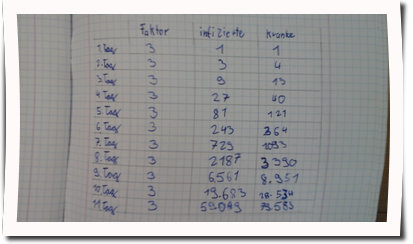 Faktor infizierte Kranke
1.Tag 3 1 1
2.Tag 3 3 4
3.Tag 3 9 13
4.Tag 3 27 40
5.Tag 3 81 121
6.Tag 3 243 364
7.Tag 3 729 1093
8.Tag 3 2187 3390
9.Tag 3 6561 8.951
10.Tag 3 19.683 28.534
11.Tag 3 59.049 79.583